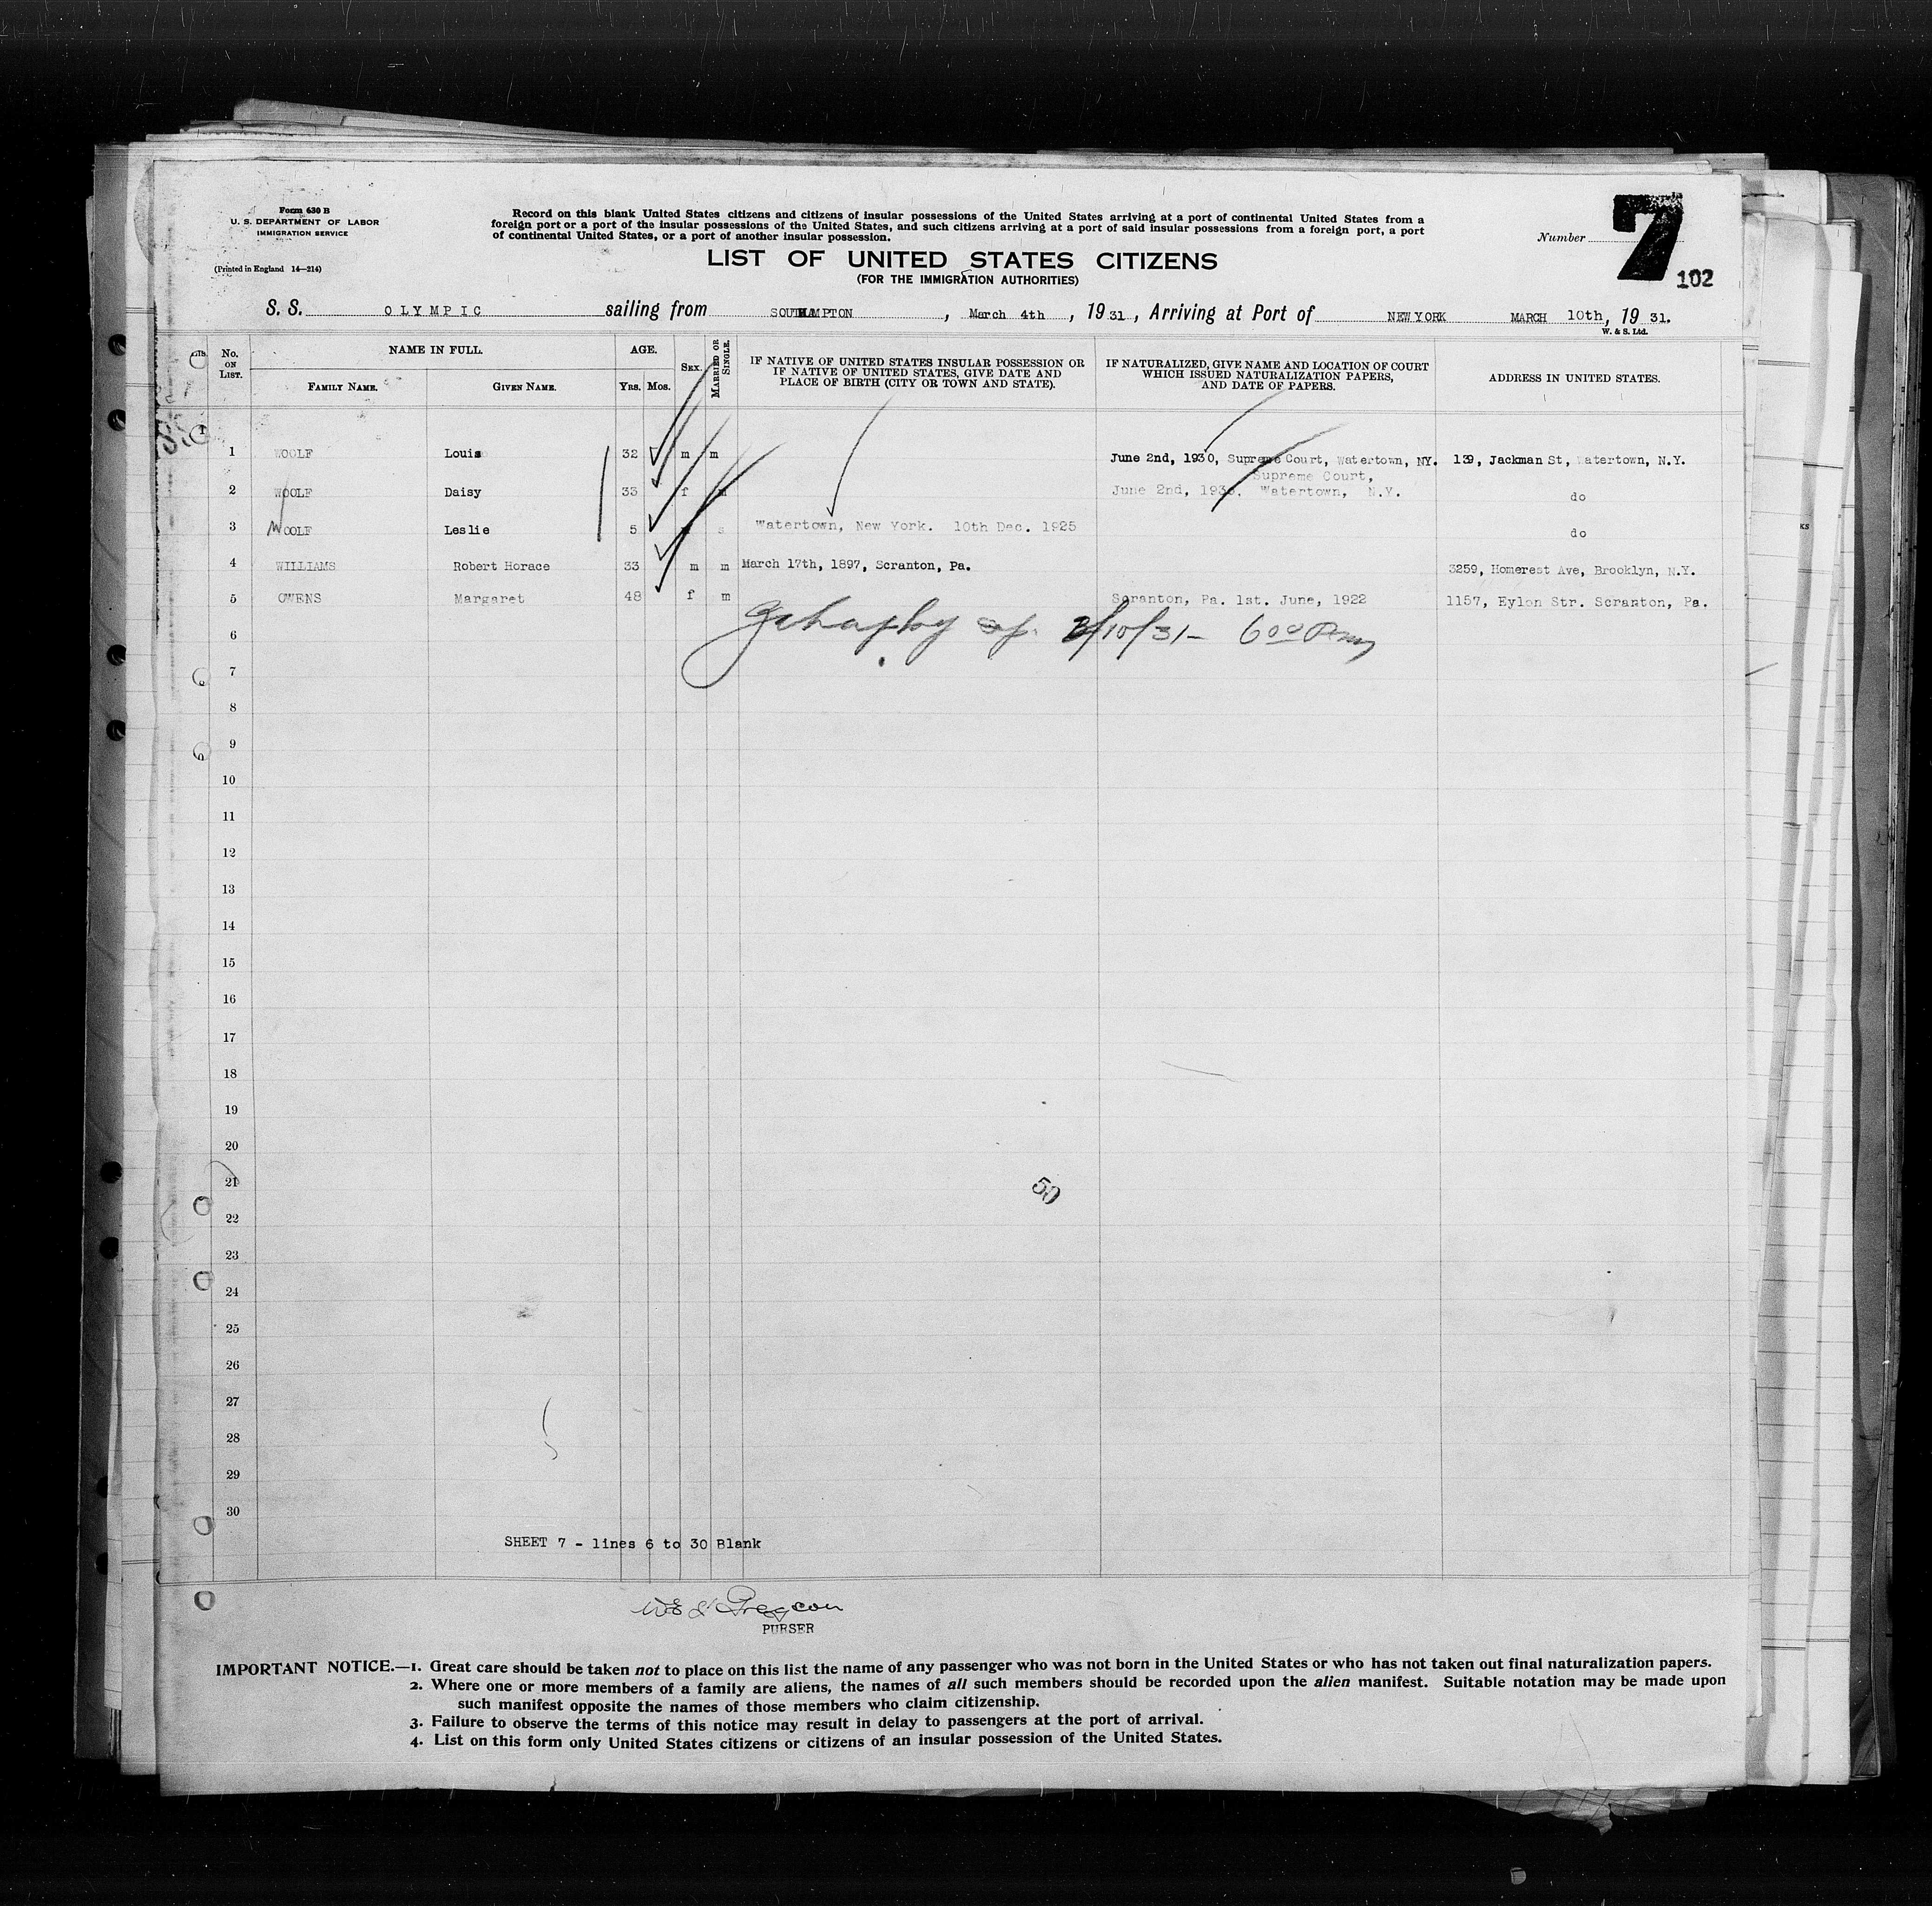 Form 630 B
U. S. DEPARTMENT OF LABOR
IMMIGRATION SERVICE
(Printed in England 14—214)
Record on this blank United States citizens and citizens of insular possessions of the United States arriving at a port of continental United States from a
foreign port or a port of the insular possessions of the United States, and such citizens arriving at a port of said insular possessions from a foreign port, a port
of continental United States, or a port of another insular possession.
Number 7
102
LIST OF UNITED STATES CITIZENS
(FOR THE IMMIGRATION AUTHORITIES)
S. S. OLYMPIC sailing from SOUTHAMPTON, March 4th, 1931, Arriving at Port of NEW YORK MARCH 10th, 1931.
W. & S. Ltd.
No. ON LIST. NAME IN FULL. AGE. SEX. MARRIED OR SINGLE. IF NATIVE OF UNITED STATES INSULAR POSSESSION OR IF NATIVE OF UNITED STATES, GIVE DATE AND PLACE OF BIRTH (CITY OR TOWN AND STATE). IF NATURALIZED, GIVE NAME AND LOCATION OF COURT WHICH ISSUED NATURALIZATION PAPERS, AND DATE OF PAPERS. ADDRESS IN UNITED STATES.
FAMILY NAME. GIVEN NAME. YRS. MOS.
1 WOOLF Louis 32 m m June 2nd, 1930, Supreme Court, Watertown, NY. 139, Jackman St, Watertown, N.Y.
Supreme Court,
2 WOOLF Daisy 33 f m June 2nd, 1930, Watertown, N.Y. do
3 WOOLF Leslie 5 s Watertown, New York. 10th Dec. 1925 do
4 WILLIAMS Robert Horace 33 m m March 17th, 1897, Scranton, Pa. 3259, Homerest Ave, Brooklyn, N.Y.
5 OWENS Margaret 48 f m Scranton, Pa. 1st. June, 1922 1157, Eylon Str. Scranton, Pa.
6 3/10/31- 6 00 Pm
7
8
9
10
11
12
13
14
15
16
17
18
19
20
21
50
22
23
24
25
26
27
28
29
30
SHEET 7 - lines 6 to 30 Blank
PURSER
IMPORTANT NOTICE.—1. Great care should be taken not to place on this list the name of any passenger who was not born in the United States or who has not taken out final naturalization papers.
2. Where one or more members of a family are aliens, the names of all such members should be recorded upon the alien manifest. Suitable notation may be made upon
such manifest opposite the names of those members who claim citizenship.
3. Failure to observe the terms of this notice may result in delay to passengers at the port of arrival.
4. List on this form only United States citizens or citizens of an insular possession of the United States.